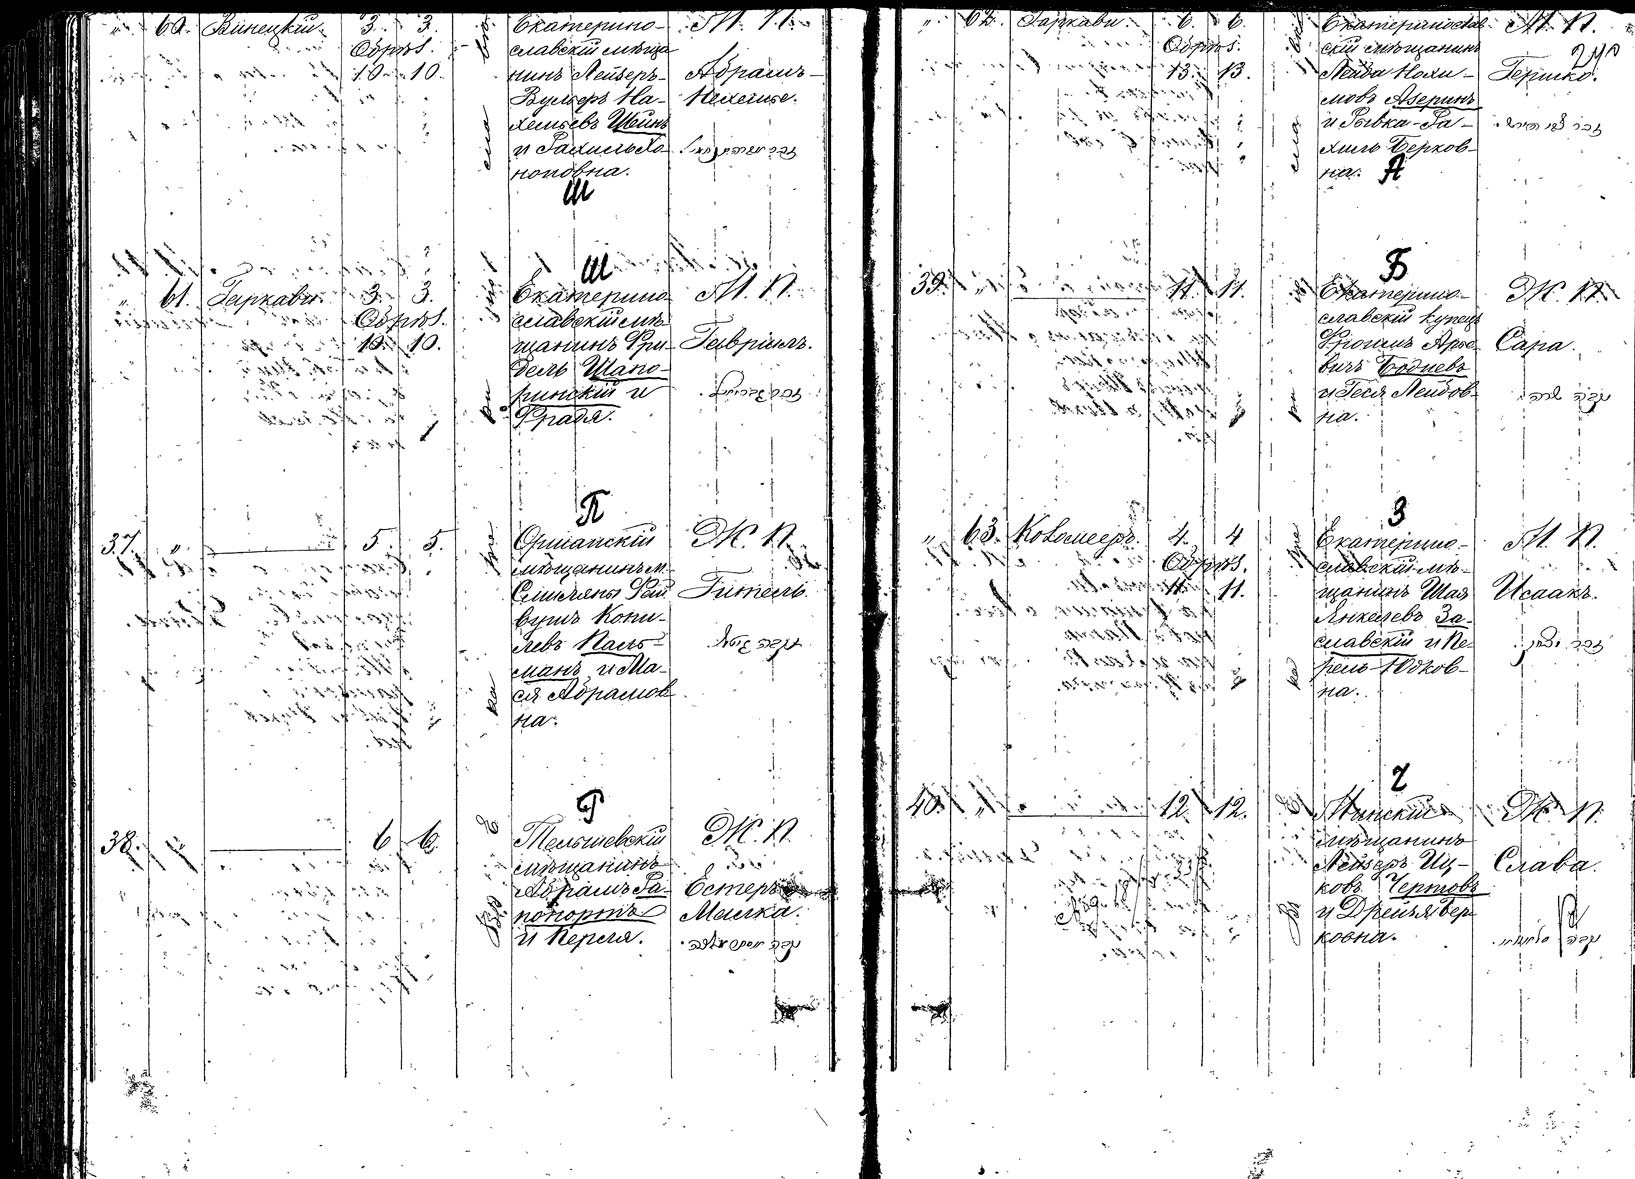 „ 60. Винецкій. 3. 3.
Обрѣз.
10. 10.
Екатерино-
славскій мѣща
нинъ Лейзеръ-
Вульфъ На-
хемьевъ Шейнъ
и Рахиль Хо-
ноповна.
Ш
М. П.
Абрамъ-
Нехемье.
Ш
„ 61. Гаркави. 3. 3.
Обрѣз.
10. 10.
Екатерино-
славскій мѣ-
щанинъ Фри-
дель Шапо-
ринскій и
Фрадя.
М. П.
Гавріилъ.
П
37. „ 5. 5.
Оршанскій
мѣщанинъ м.
Смиляны Фай
вушъ Копи-
левъ Пальт-
манъ и Ма-
ся Абрамов
на.
Ж. П.
Гитель.
Р
38. „ 6 6.
Тельшевскій
мѣщанинъ
Абрамъ Ра-
попортъ
и Переля.
Ж. П.
Естеръ
Малка.
„ 62. Гаркави. 6. 6.
Обрѣз.
13. 13.
Екатеринослав
скій мѣщанинъ
Лейба Нохи-
мовъ Азеринъ
и Рывка-Ра-
хиль Берков-
на. А
М. П.
Гершко.
זכר צבי הירש.
Б
39. „ 11. 11.
Екатерино-
славскій купецъ
Фроимъ Арье-
вичъ Бодневъ
и Геся Лейбов-
на.
Ж. П.
Сара.
נקבה שרה.
З
„ 63. Коломееръ. 4. 4
Обрѣз.
11. 11.
Екатерино-
славскій мѣ-
щанинъ Шая
Янкелевъ За-
славскій и Пе-
рель Юдков-
на.
М. П.
Исаакъ.
זכר יצחק.
Ч
40. „ 12. 12.
Минскій
мѣщанинъ
Лейзеръ Иц-
ковъ Чертовъ
и Дрейзя Бер
ковна.
Ж. П.
Слава.